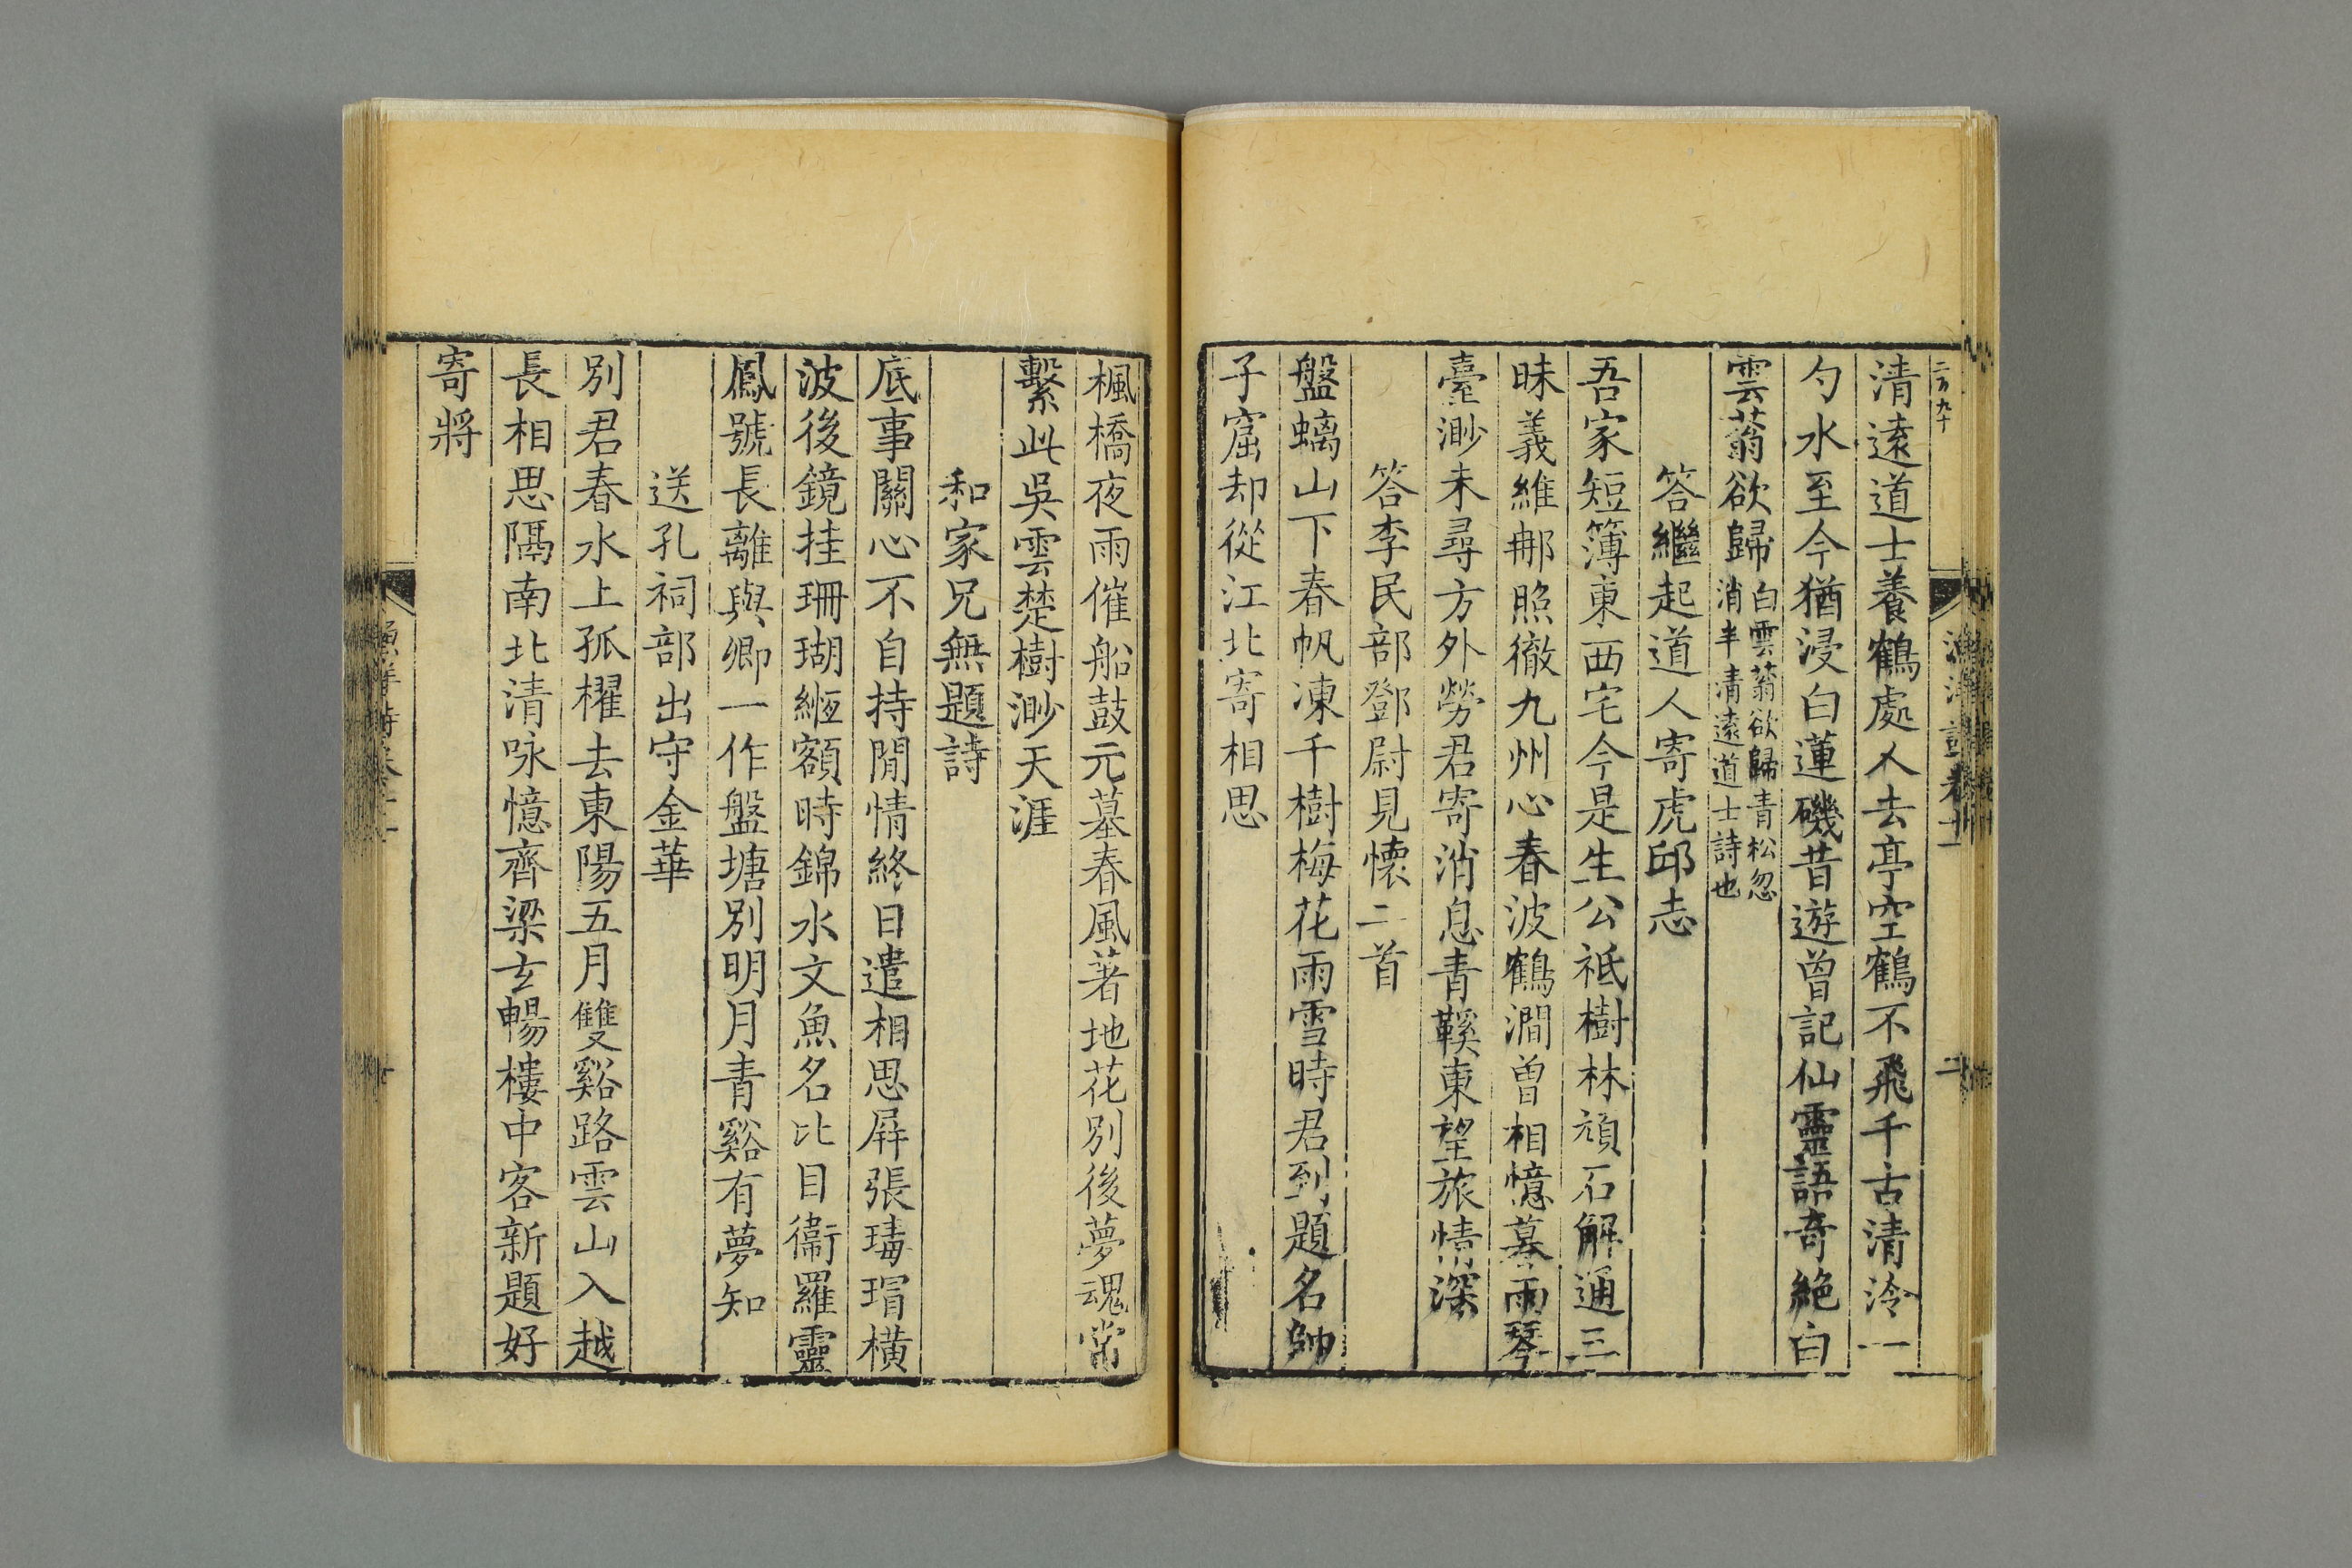 清遠道士養鶴處人去亭空鶴不飛千古清泠一
勺水至今猶浸白蓮磯昔遊曾記仙靈語奇絕白
雲蓊欲歸
白雲蓊欲歸青松忽
消半清遠道士詩也
答繼起道人寄虎邱志
吾家短簿東西宅今是生公祗樹林頑石解通三
昧義維郍照徹九州心春波鶴澗曾相憶暮雨琴
臺渺未尋方外勞君寄消息青鞵東望旅情深
答李民部鄧尉見懷二首
盤螭山下春帆凍千樹梅花雨雪時君到題名帥
子窟却從江北寄相思
楓橋夜雨催船鼓元墓春風著地花別後夢魂常
繫此吳雲楚樹渺天涯
和家兄無題詩
底事關心不自持閒情終日遣相思屏張瑇瑁橫
波後鏡挂珊瑚絚額時錦水文魚名比目衞羅靈
鳳號長離與卿一作盤塘別明月青谿有夢知
送孔祠部出守金華
別君春水上孤櫂去東陽五月雙谿路雲山入越
長相思隔南北清咏憶齊梁玄暢樓中客新題好
寄將